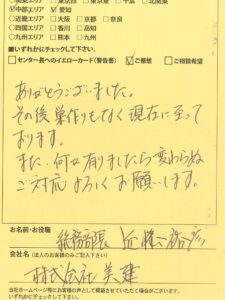 ☑中部エリア ☑愛知
□近畿エリア □大阪 □京都 □奈良
□四国エリア □香川 □高知
□九州エリア □熊本 □九州
■いずれかにチェックして下さい。
□センター長へのイエローカード(警告書) ☑ご感想 □ご相談希望
ありがとうございました。
その後巣作りもなく現在に至って
おります。
また、何か有りましたら変わらぬ
ご対応よろしくお願いします。
お名前・お役職
総務部長 近藤
会社名 (法人のお客様のみご記入下さい)
株式会社 美建
当社ホームページ等にお客様の声として掲載させていただく場合がございます。
いずれかにチェックして下さい。